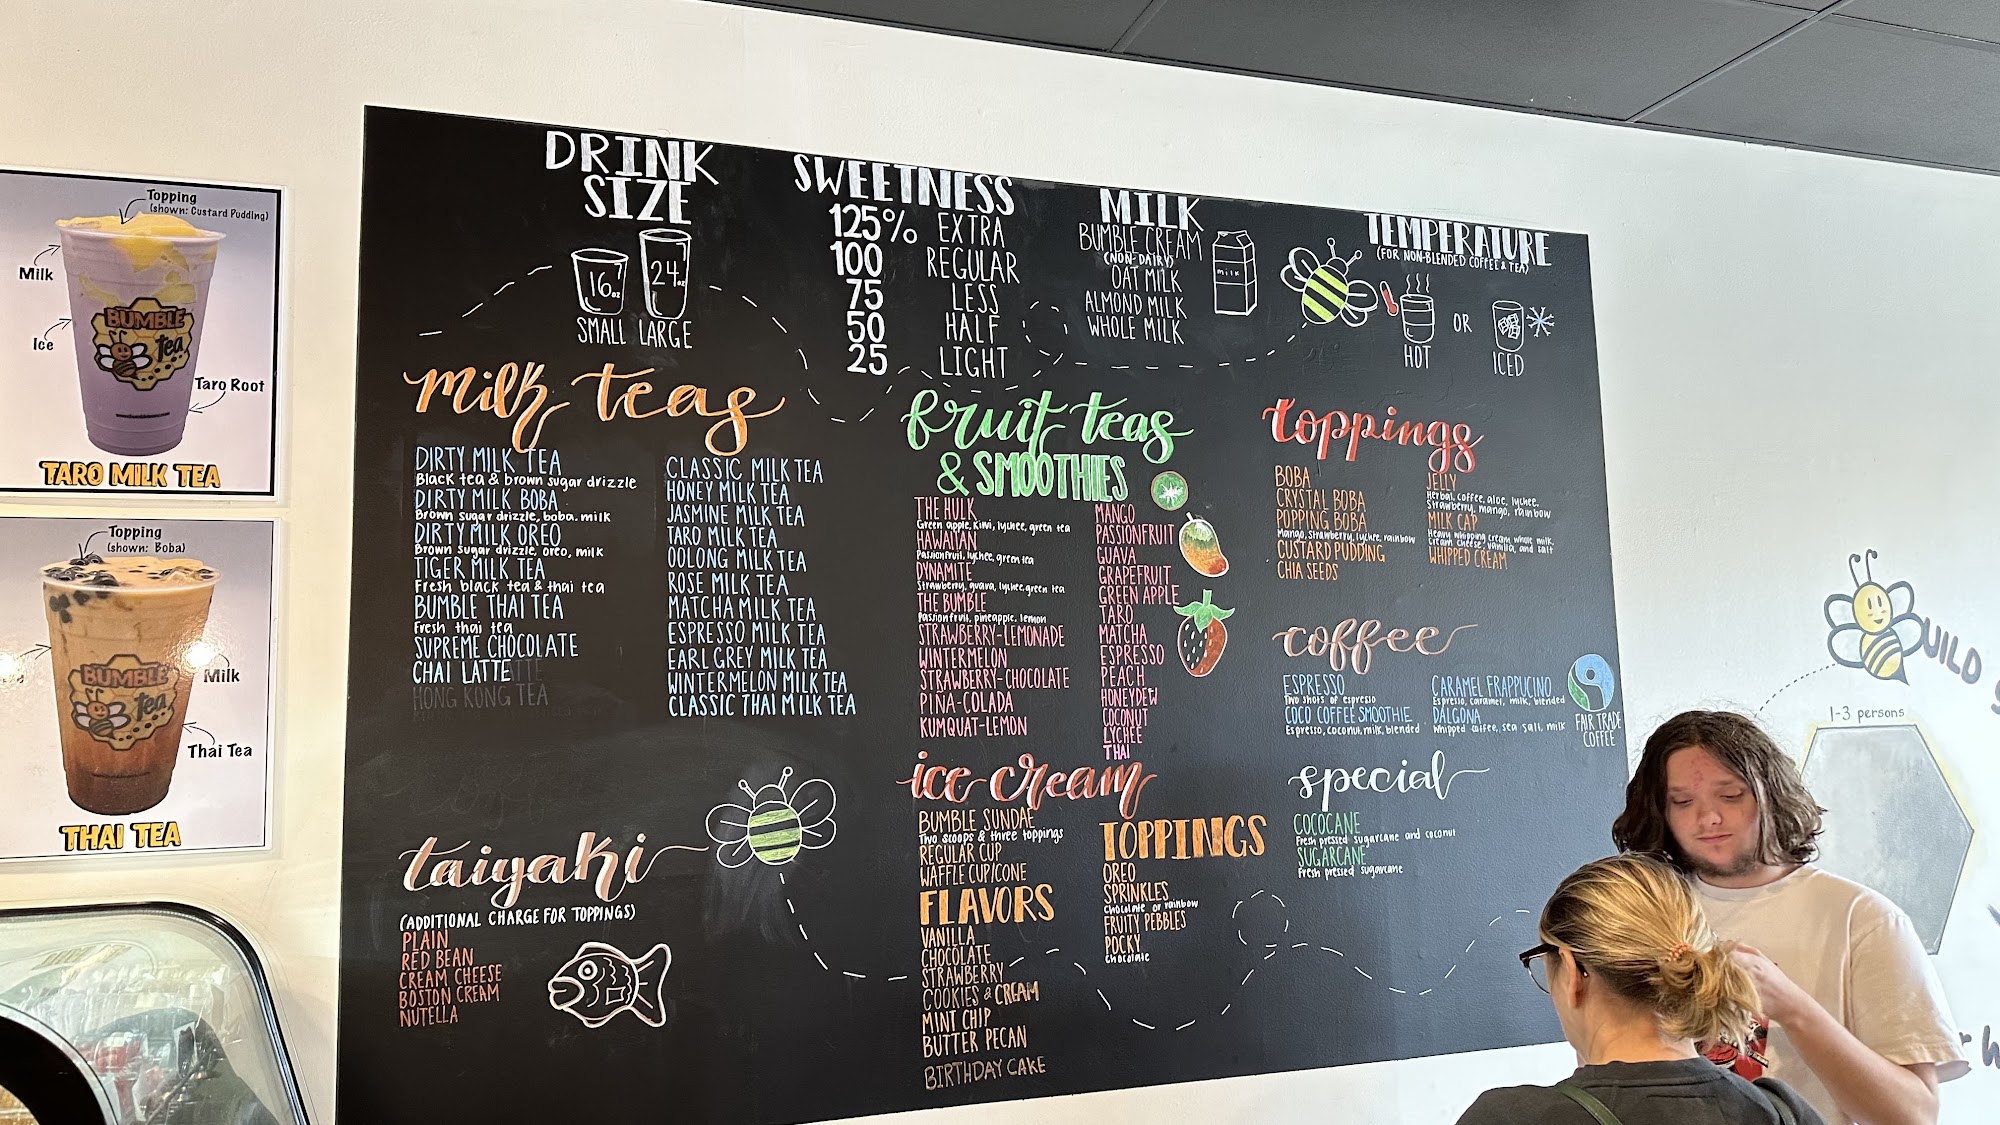 Topping
(shown: Custard Pudding)
Milk
Ice
BUMBLE
tea
Taro Root
TARO MILK TEA
Topping
(shown: Boba)
BUMBLE
tea
Milk
Thai Tea
THAI TEA
DRINK
SIZE
16oz
24oz
SMALL
LARGE
SWEETNESS
125% EXTRA
100 REGULAR
75 LESS
50 HALF
25 LIGHT
MILK
BUMBLE CREAM
(NON-DAIRY)
OAT MILK
ALMOND MILK
WHOLE MILK
milk
TEMPERATURE
(FOR NON-BLENDED COFFEE & TEA)
HOT
OR
ICED
milk teas
DIRTY MILK TEA
Black tea & brown sugar drizzle
DIRTY MILK BOBA
Brown sugar drizzle, boba, milk
DIRTY MILK OREO
Brown sugar drizzle, oreo, milk
TIGER MILK TEA
Fresh black tea & thai tea
BUMBLE THAI TEA
Fresh thai tea
SUPREME CHOCOLATE
CHAI LATTE
HONG KONG TEA
CLASSIC MILK TEA
HONEY MILK TEA
JASMINE MILK TEA
TARO MILK TEA
OOLONG MILK TEA
ROSE MILK TEA
MATCHA MILK TEA
ESPRESSO MILK TEA
EARL GREY MILK TEA
WINTERMELON MILK TEA
CLASSIC THAI MILK TEA
taiyaki
(ADDITIONAL CHARGE FOR TOPPINGS)
PLAIN
RED BEAN
CREAM CHEESE
BOSTON CREAM
NUTELLA
fruit teas
& SMOOTHIES
THE HULK
Green apple, kiwi, lychee, green tea
HAWAIIAN
Passionfruit, lychee, green tea
DYNAMITE
Strawberry, guava, lychee, green tea
THE BUMBLE
Passionfruit, pineapple, lemon
STRAWBERRY-LEMONADE
WINTERMELON
STRAWBERRY-CHOCOLATE
PIÑA-COLADA
KUMQUAT-LEMON
MANGO
PASSIONFRUIT
GUAVA
GRAPEFRUIT
GREEN APPLE
TARO
MATCHA
ESPRESSO
PEACH
HONEYDEW
COCONUT
LYCHEE
THAI
ice cream
BUMBLE SUNDAE
Two scoops & three toppings
REGULAR CUP
WAFFLE CUP/CONE
FLAVORS
VANILLA
CHOCOLATE
STRAWBERRY
COOKIES & CREAM
MINT CHIP
BUTTER PECAN
BIRTHDAY CAKE
TOPPINGS
OREO
SPRINKLES
Chocolate or rainbow
FRUITY PEBBLES
POCKY
Chocolate
toppings
BOBA
CRYSTAL BOBA
POPPING BOBA
Mango, strawberry, lychee, rainbow
CUSTARD PUDDING
CHIA SEEDS
JELLY
Herbal, coffee, aloe, lychee,
Strawberry, mango, rainbow
MILK CAP
Heavy whipping cream, whole milk,
Cream cheese, vanilla, and salt
WHIPPED CREAM
coffee
ESPRESSO
Two shots of espresso
COCO COFFEE SMOOTHIE
Espresso, coconut, milk, blended
CARAMEL FRAPPUCINO
Espresso, caramel, milk, blended
DALGONA
Whipped coffee, sea salt, milk
FAIR TRADE
COFFEE
special
COCOCANE
Fresh pressed sugarcane and coconut
SUGARCANE
Fresh pressed sugarcane
UILD
1-3 persons